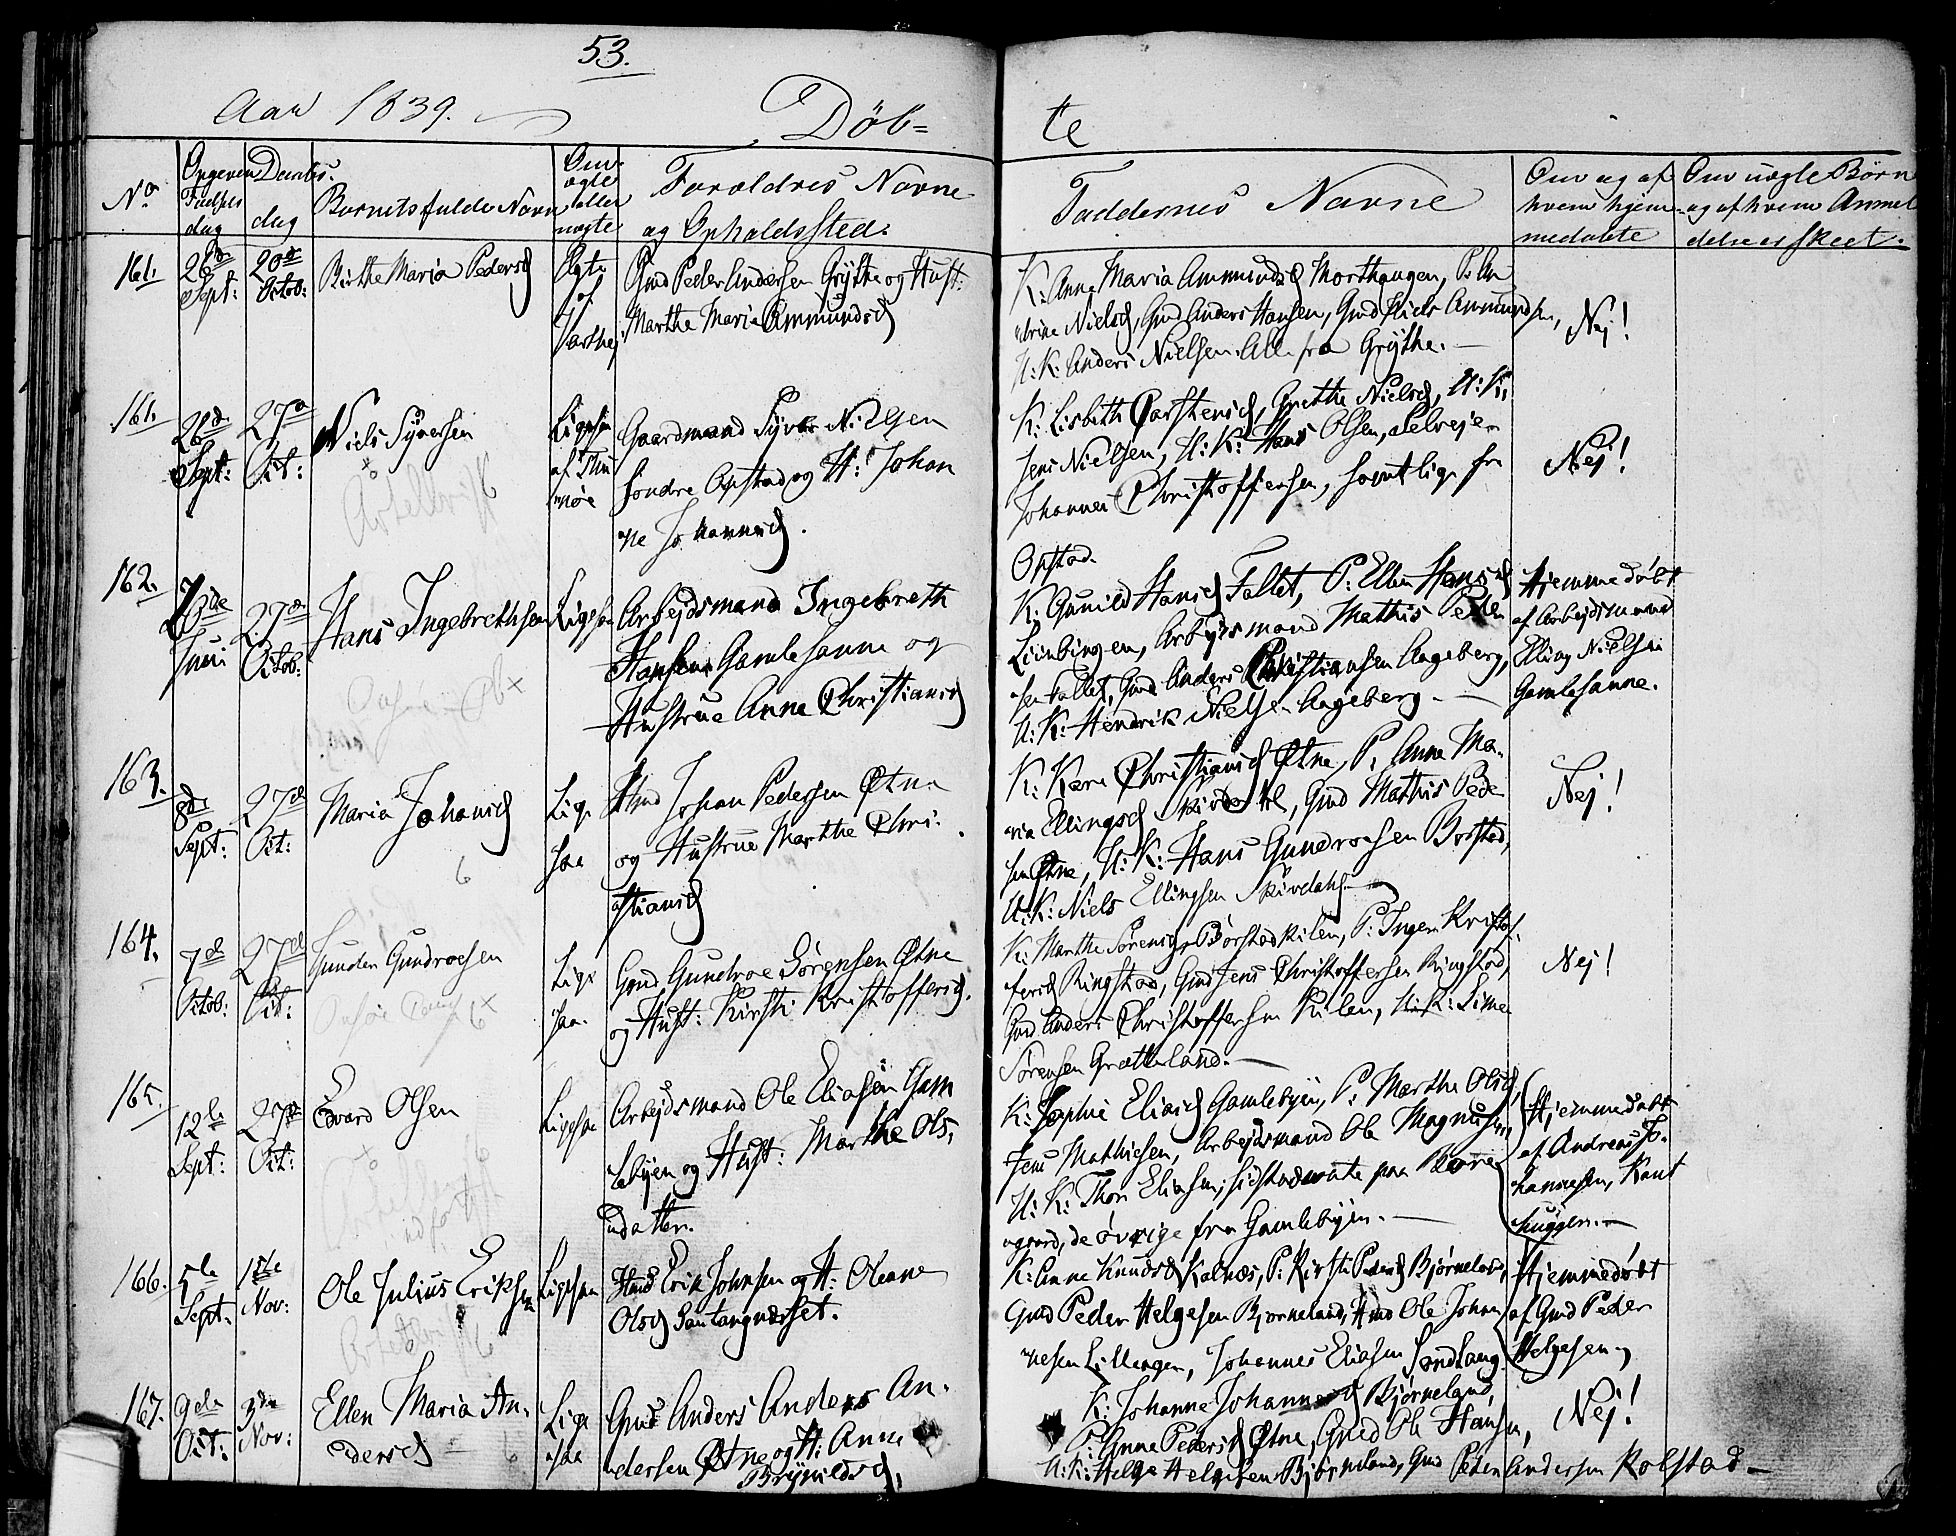 53.
Aar 1839.
Døb=
te
No
Opgiven Fødsels dag
Daabs. dag
Barnets fulde Navn
Om ægte eller uægte
Forældres Navne
og Opholdssted.
Faddernes Navne
Om og af hvem hjemmedøbte
Om uægte Børn og af hvem Anmeldelse er skeet.
161. 28de Sept: 20de Octob: Birthe Maria Pedersd Ægte
Gmd Peder Andersen Grÿthe og Hust:
Marthe Marie Ammundsd
K: Anne Maria Ammundsd Northaugen, P:
Nielsd, Gmd Anders Hansen, Gmd Niels Ammundsen,
U: K: Anders Nielsen. Alle fra Grÿthe. —
Nej!
161. 26de Sept: 27de Oct: Niels Syversen
Ligesaa af Thu
Gaardmand Syver Nielsen
søndre Opstad og H: Johan
ne Johannesd.
K: Lisbeth Carstensd, Grethe Nielsd, U: K:
Jens Nielsen, U: K: Hans Olsen, Selvejer
Johannes Christoffersen, samtlige fra
Opstad.
Nej!
162. Juni 27de Octob: Hans Ingebrethsen Ligesaa
Arbejdsmand Ingebreth
Hansen Gamlesanne og
Hustrue Anne Christiansd
K: Gunild Hansd Fallet, P: Ellen Hansd
Arbejdsmand Mathis Peder
sen Fallet, Gmd Anders Christiansen Aageberg,
U: K: Hendrik Nielsen Aageberg. —
Hjemmedøbt
af Arbejdsmand
Elling Nielsen
Gamlesanne.
163. 8de Sept: 27de Oct: Maria Johansd
Lige
saa
Hmd Johan Pedersen Øtne
og Hustrue Marthe Chri-
stiansd
K: Kari Christiansd Øtne, P: Anne Ma-
ria Ellingsd Skivdahl, Gmd Mathis Peder
sen Øtne, U: K: Hans Gundroesen Borstad,
U: K: Niels Ellingsen Skivdahl —
Nej!
6
164. 7de Octob: 27de Oct: Gunder Gundroesen
Lige
saa.
Gmd Gundroe Sørensen Øtne
og Hust: Kirsti Kristoffersd.
K: Marthe Sørensd Børstadkilen, P: Inger Kristof-
fersd Ringstad, Gmd Jens Christoffersen Ringstad,
Gmd Anders Christoffersen Kilen, U: K: Simen
Sørensen Grætterland. —
Nej!
165. 12te Sept: 27de Oct: Edvard Olsen
Ligesaa
Arbejdsmand Ole Eliasen Gam
lebyen og Hust: Marthe Ols-
datter.
K: Sophie Eliasd Gamlebyen, P: Marthe Olsd,
Jens Mathisen, Arbejdsmand Ole Magnusen,
U: K: Thor Eliasen, sidstnævnte paa Borre
gaard, de øvrige fra Gamlebyen. —
Hjemmedøbt
af Andreas Jo-
hannesen,
166. 5te Sept: 1ste Nov: Ole Julius Eriksen Ligesaa
Hmd Erik Johnsen og H: Oleane
Olsd Santangnæsset.
K: Anne Knudsd Kalnæs, P: Kirsti Pedersd Bjørneland,
Gmd Peder Helgesen Bjørneland, Hmd Ole Johan
nesen Lillengen, Johannes Eliasen Sandtang.
Hjemmedøbt
af Gmd Peder
Helgesen.
167. 9de Oct: 3die Nov: Ellen Maria An-
dersd
Lige
saa
Gmd Anders Anders An-
dersen Øtne og H: Anne
Brynildsd,
K: Johanne Johannesd Bjørneland,
P: Anne Pedersd Øtne, Gmd Ole Hansen,
U: K: Helge Helgesen Bjørneland, Gmd Peder Andersen Kolstad —
Nej!